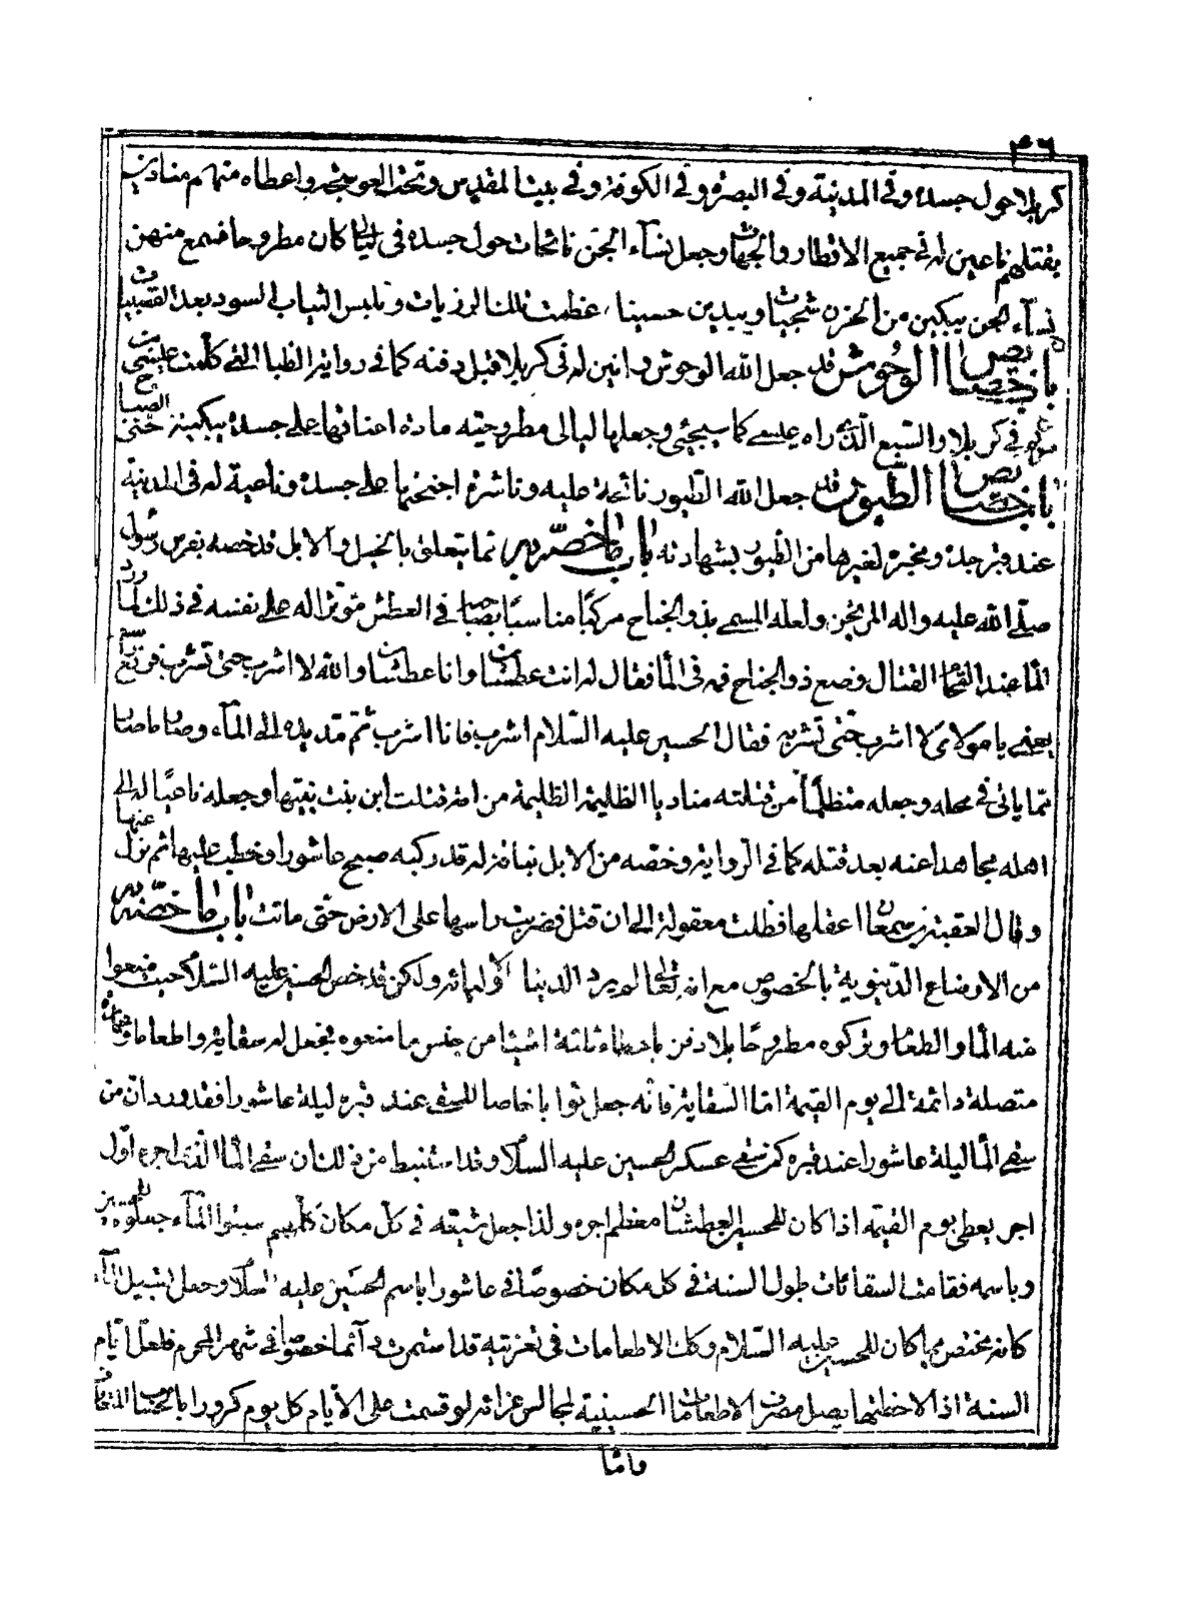 ٣٦
كربلا حول جسده وفي المدينة وفي البصرة وفي الكوفة وفي بيت المقدس وتحت العوسجة واعطاه منهم منادين
بقتله ناعين له في جميع الاقطار والجهات وجعل نسآء الجن نائحات حول جسده في ليالي كان مطروحا فسمع منهن
نسآء الجن يبكين من الحزن شجيات ويندبن حسينا عظمت تلك الرزيات ويلبس الثياب السود بعد القصبيات
باب خصايص الوحوش قد جعل الله الوحوش رانين له في كربلا قبل دفنه كما في رواية الظبا التي كلمت عيسى
في كربلا والسبع الذي راه عيسى كما سيجئي وجعلها ليالي مطروحيته مادة اعناقها على جسده يبكينه حتى الصباح
باب خصايص الطيور قد جعل الله الطيور نائحة عليه وناشرة اجنحتها على جسده وناعية له في المدينة
عند قبر جده ومخبرة لغيرها من الطيور بشهادته باب ما خصه به مما يتعلق بالخيل والابل قد خصه بفرس رسول
صلى الله عليه واله المرتجز ولعله المسمى بذو الجناح مركبا مناسبا بصاحبه في العطش مؤثرا له على نفسه في ذلك لما ورد
الما عند القتال وضع ذو الجناح فمه في الما فقال له انت عطشان وانا عطشان والله لا اشرب حتى تشرب فرفع راسه
يعني يا مولاي لا اشرب حتى تشرب فقال الحسين عليه السلام اشرب فانا اشرب ثم مد يده الى المآء وصار ما صار
مما ياتي في محله وجعله متظلما من قتلته مناديا الظليمة الظليمة من امة قتلت ابن بنت نبيها وجعله ناعيا له الى
اهله مجاهدا عنه بعد قتله كما في الرواية وخصه من الابل بناقة له قد ركبه صبيح عاشورا وخطب عليها ثم نزل عنها
وقال لعقبة بن سمعان اعقلها فظلت معقولة الى ان قتل فضربت راسها على الارض حتى ماتت باب ما خصه به
من الاوضاع الدنيوية بالخصوص مع انه تعالى لم يرد الدنيا لاوليائه ولكن قد خص الحسين عليه السلام حيث منعوا
منه الما والطعام وتركوه مطروحا بلا دفن باعطاء ثلثة اشيا من جنس ما منعوه فجعل له سقاية واطعاما
متصلة دائمة الى يوم القيمة اما السقاية فانه جعل ثوابا خاصا للسقي عند قبره ليلة عاشورا فقد ورد ان من
سقى الما ليلة عاشورا عند قبره كمن سقى عسكر الحسين عليه السلام وقد استنبط من ذلك ان سقي الما الذي اجره اول
اجر يعطى يوم القيمة اذا كان للحسين العطشان معظم اجره ولذا جعل شيعته في كل مكان كلهم سبلوا المآء جعلوه للحسين
وباسمه فقامت السقائات طول السنة في كل مكان خصوصا في عاشورا باسم الحسين عليه السلام وجعل تسبيل المآء
كانه مختص بها كان للحسين عليه السلام وكل الاطعامات في تعزيته قد استمرت دآئما خصوصا في شهر المحرم فلعل ايام
السنة اذا لاحظتها يصل مصرف الاطعامات الحسينية لمجالس عزائه لو قسمت على الايام كل يوم كرورا بالحساب
واما